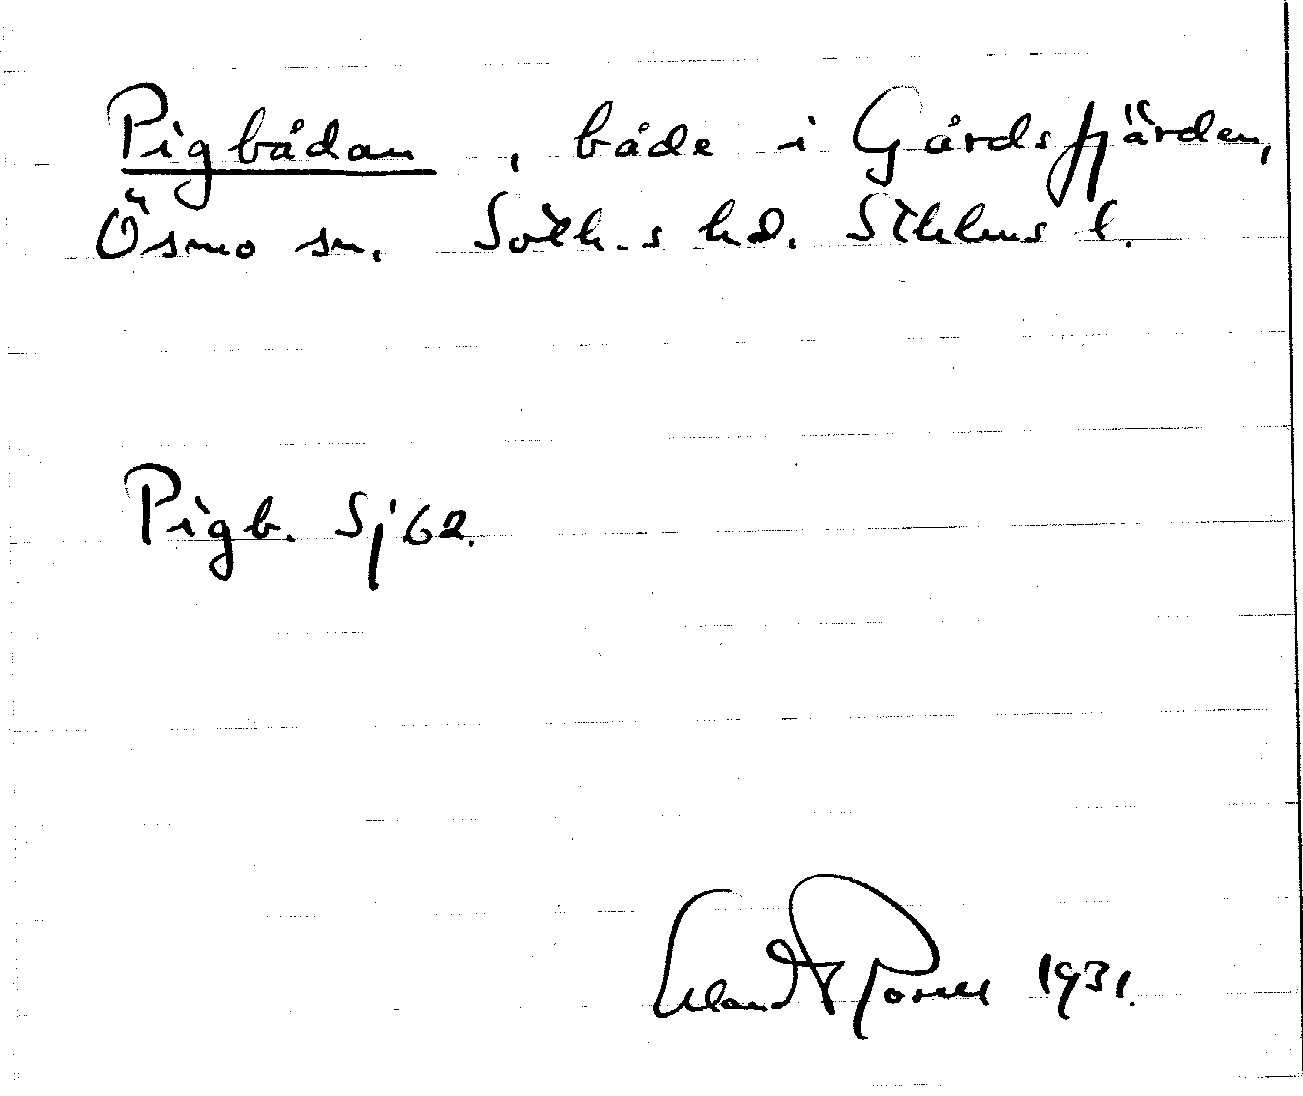 Pigbådan, både i Gårdsfjärden,
Ösmo sn. Soth.s hd. Sthlms l.
Pigb. Sj 62.
Erland Rosell 1931.